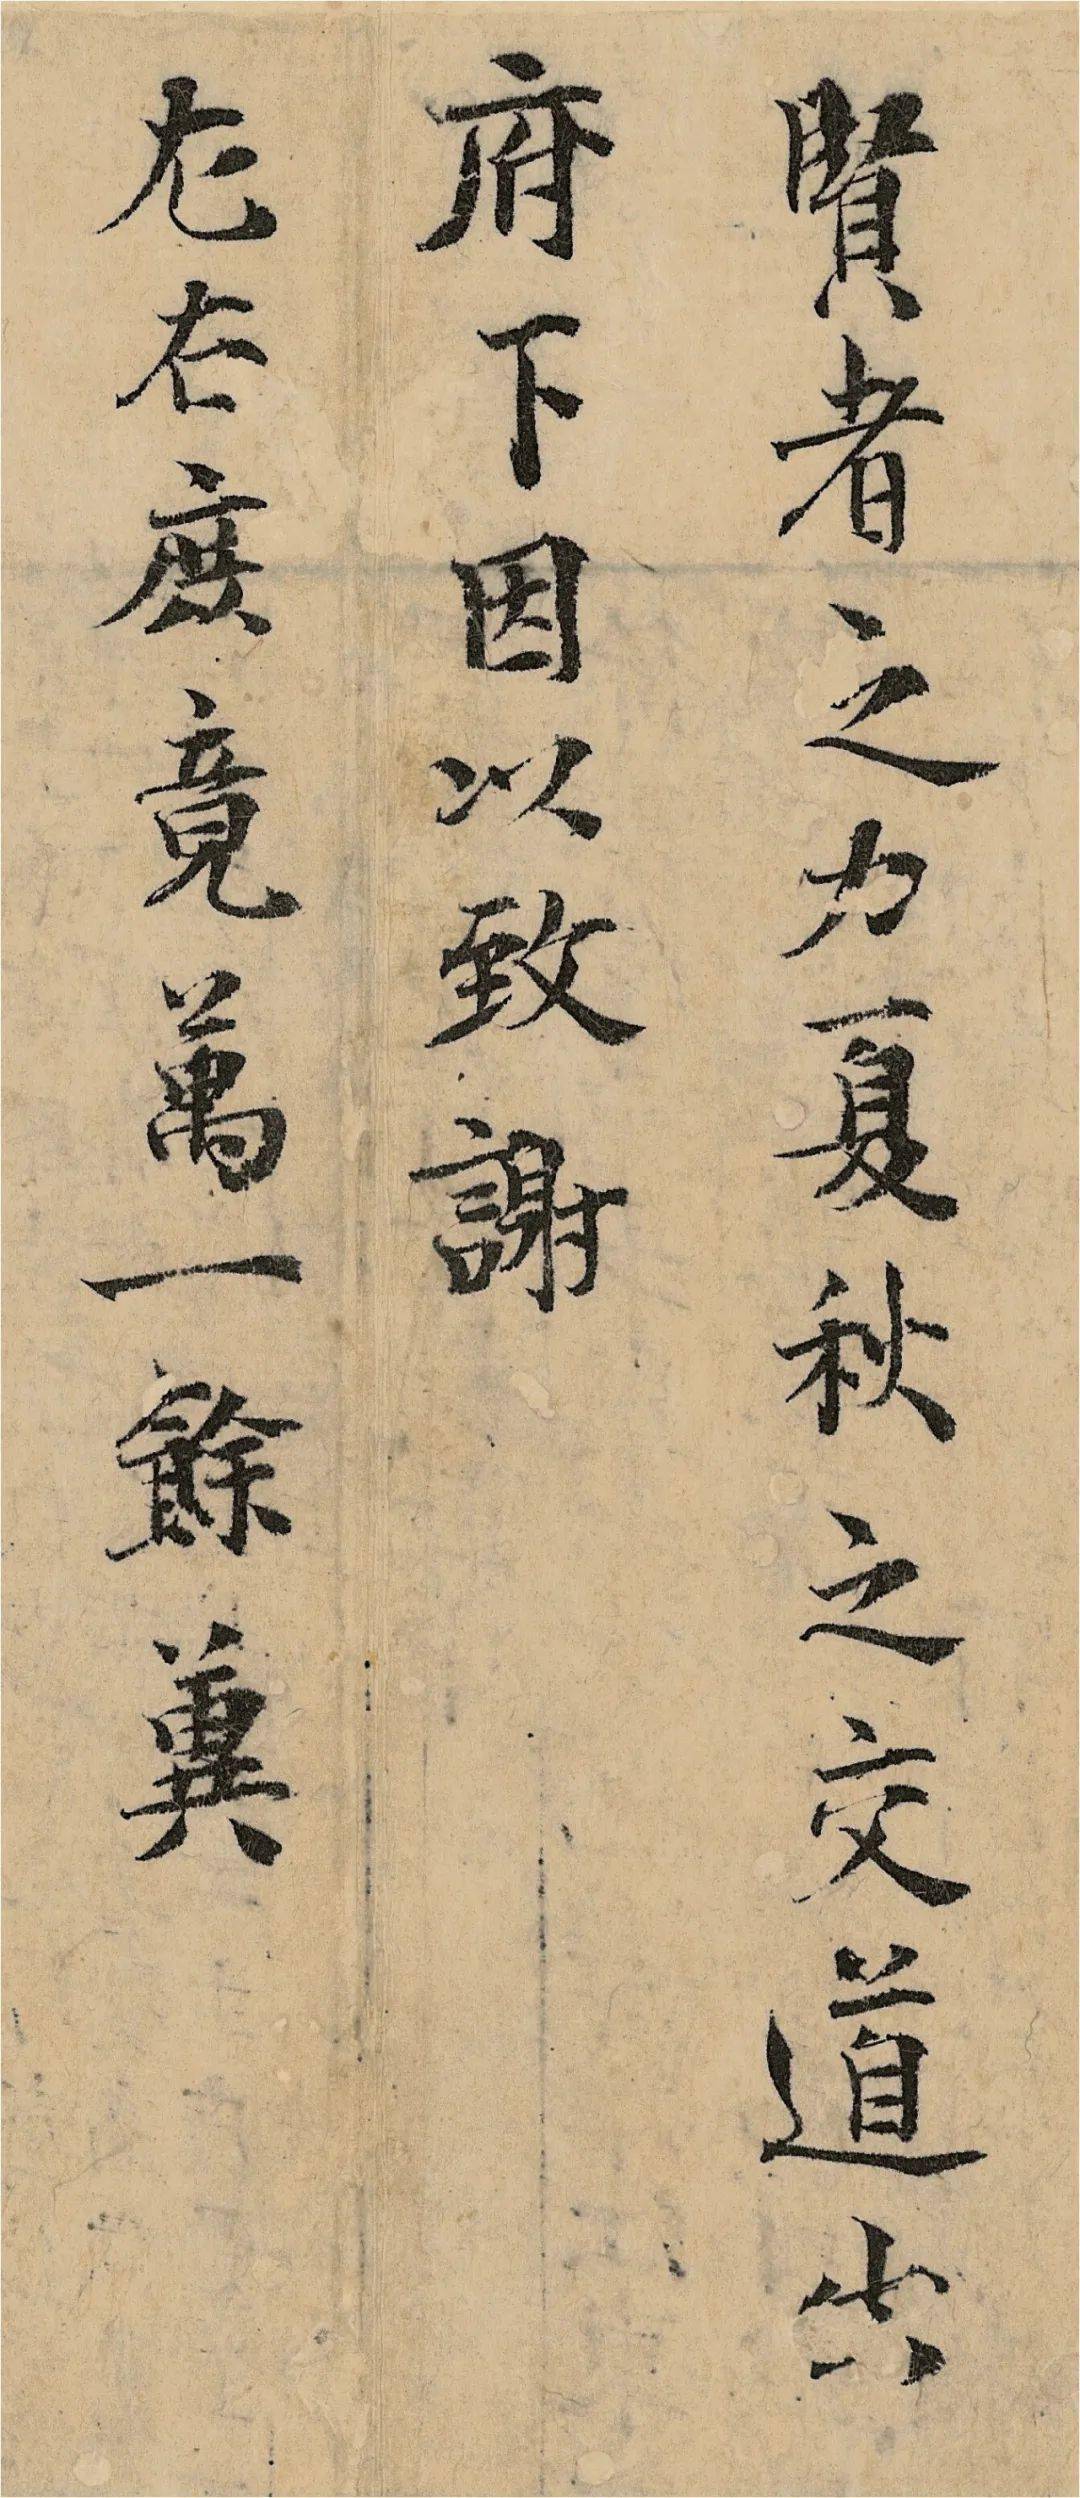 賢者之力夏秋之交道出
府下因以致謝
左右庶竟萬一餘冀